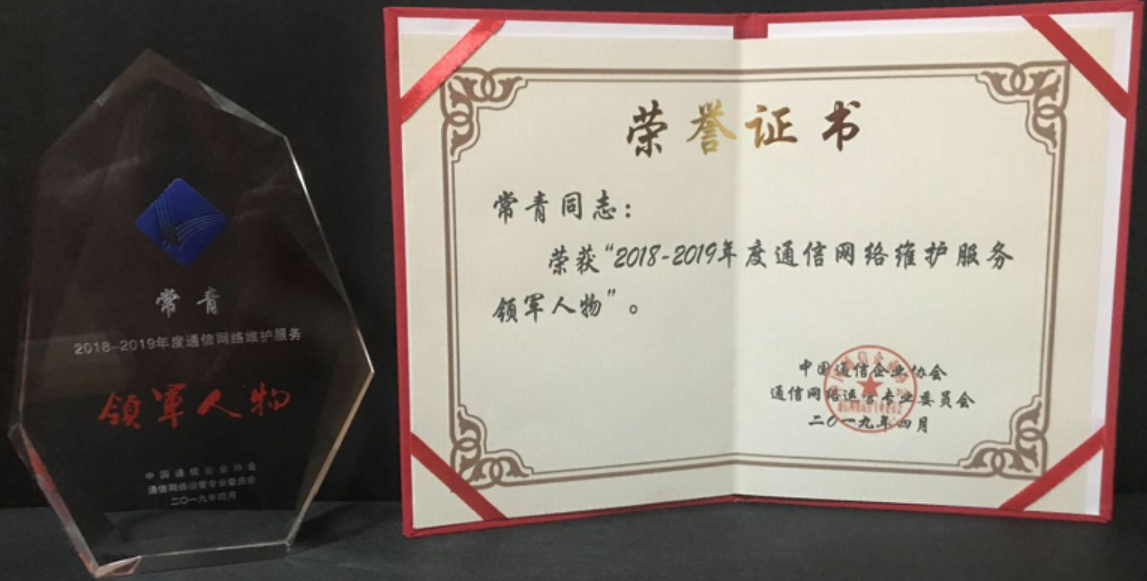 常青
2018-2019年度通信网络维护服务
领军人物
中国通信企业协会
通信网络运营专业委员会
二〇一九年四月
荣誉证书
常青同志：
荣获“2018-2019年度通信网络维护服务
领军人物”。
中国通信企业协会
通信网络运营专业委员会
二〇一九年四月